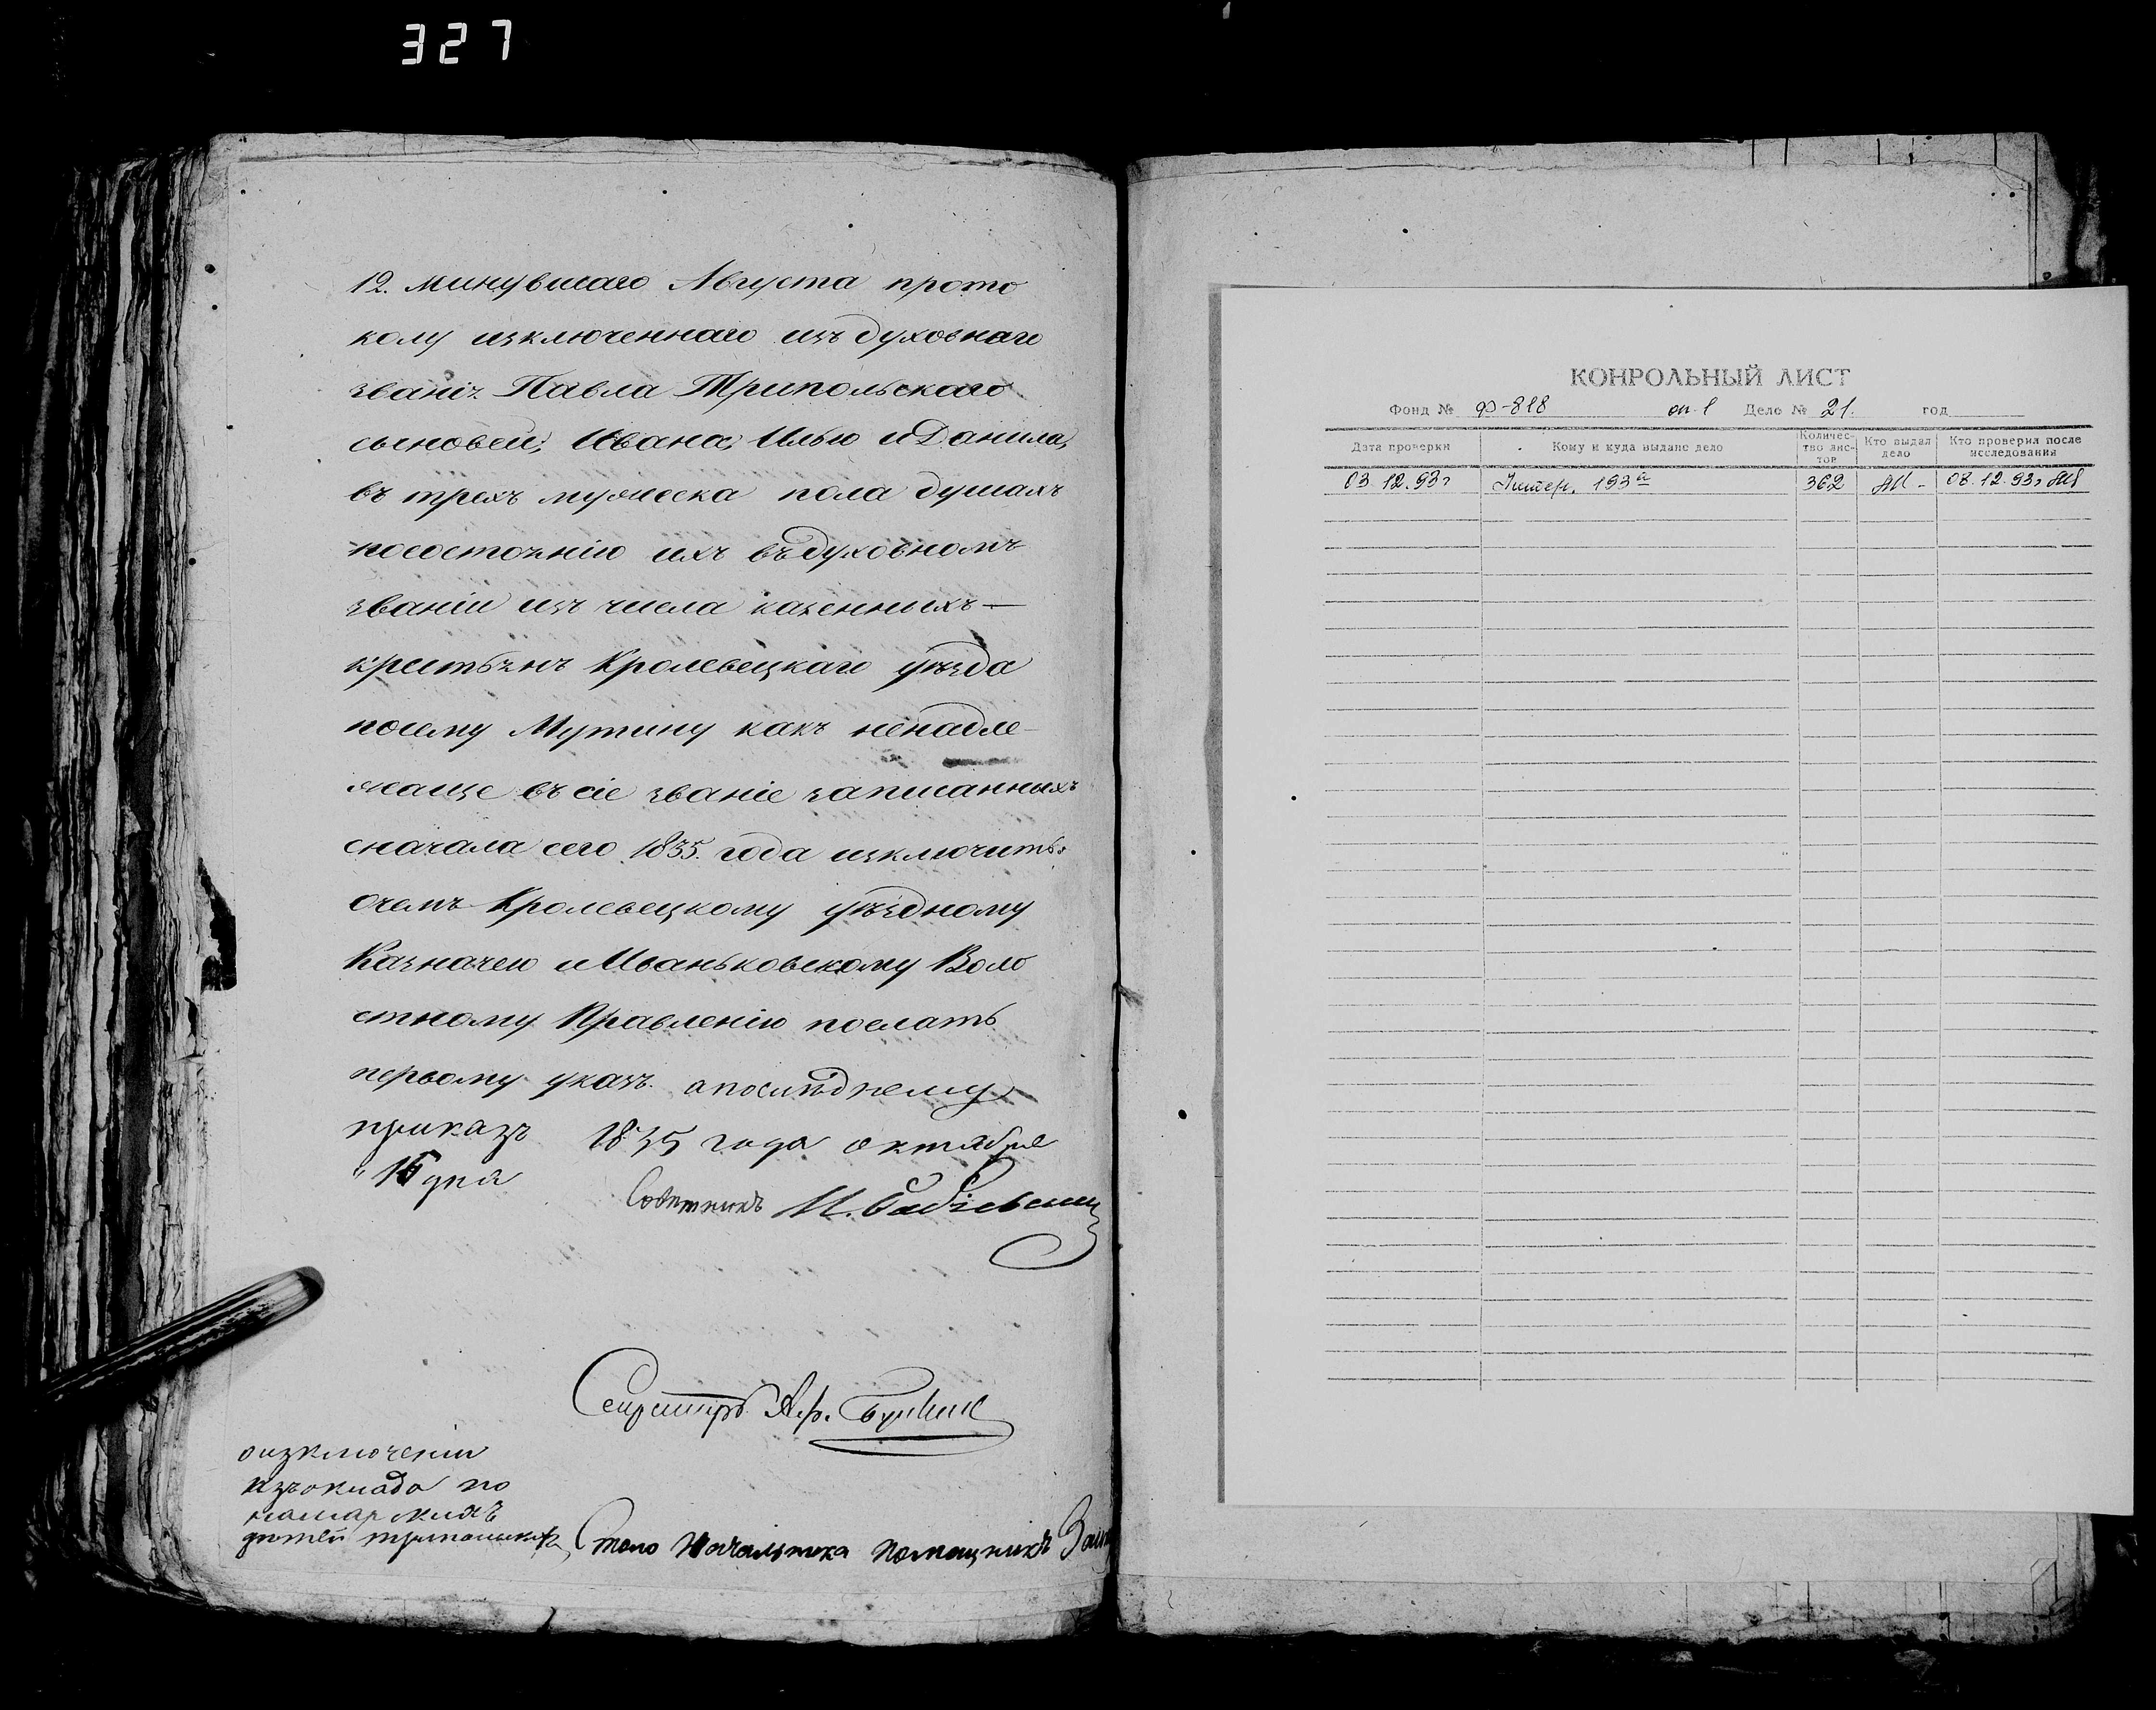 327
12. минувшаго Августа прото
колу изключеннаго изъ духовнаго
званія Павла Трипольскаго
сыновей, Ивана, Илью и Данила,
въ трехъ мужеска пола душахъ
посостоянію ихъ въ духовномъ
званіи изъ числа казенныхъ —
крестьянъ Кролевецкаго уѣзда
поселу Мутину какъ ненадле-
жаще въ сіе званіе записанныхъ
сначала сего 1835. года изключить.
очемъ Кролевецкому уѣздному
Казначею и Иваньковскому Воло
стному Правленію послать
первому указъ. а послѣднему
приказъ 1835 года октября
дня
Совѣтникъ
Секретарь
о изключеніи
изъ оклада по
дѣтей
Столо Начальника Помощникъ
КОНРОЛЬНЫЙ ЛИСТ
Фонд № Ф-818 оп. 1 Дело № 21. год
Дата проверки Кому и куда выдане дело Количес-тво лис-тов Кто выдал дело Кто проверил после исследования
03.12.93г 193 362 08.12.93г